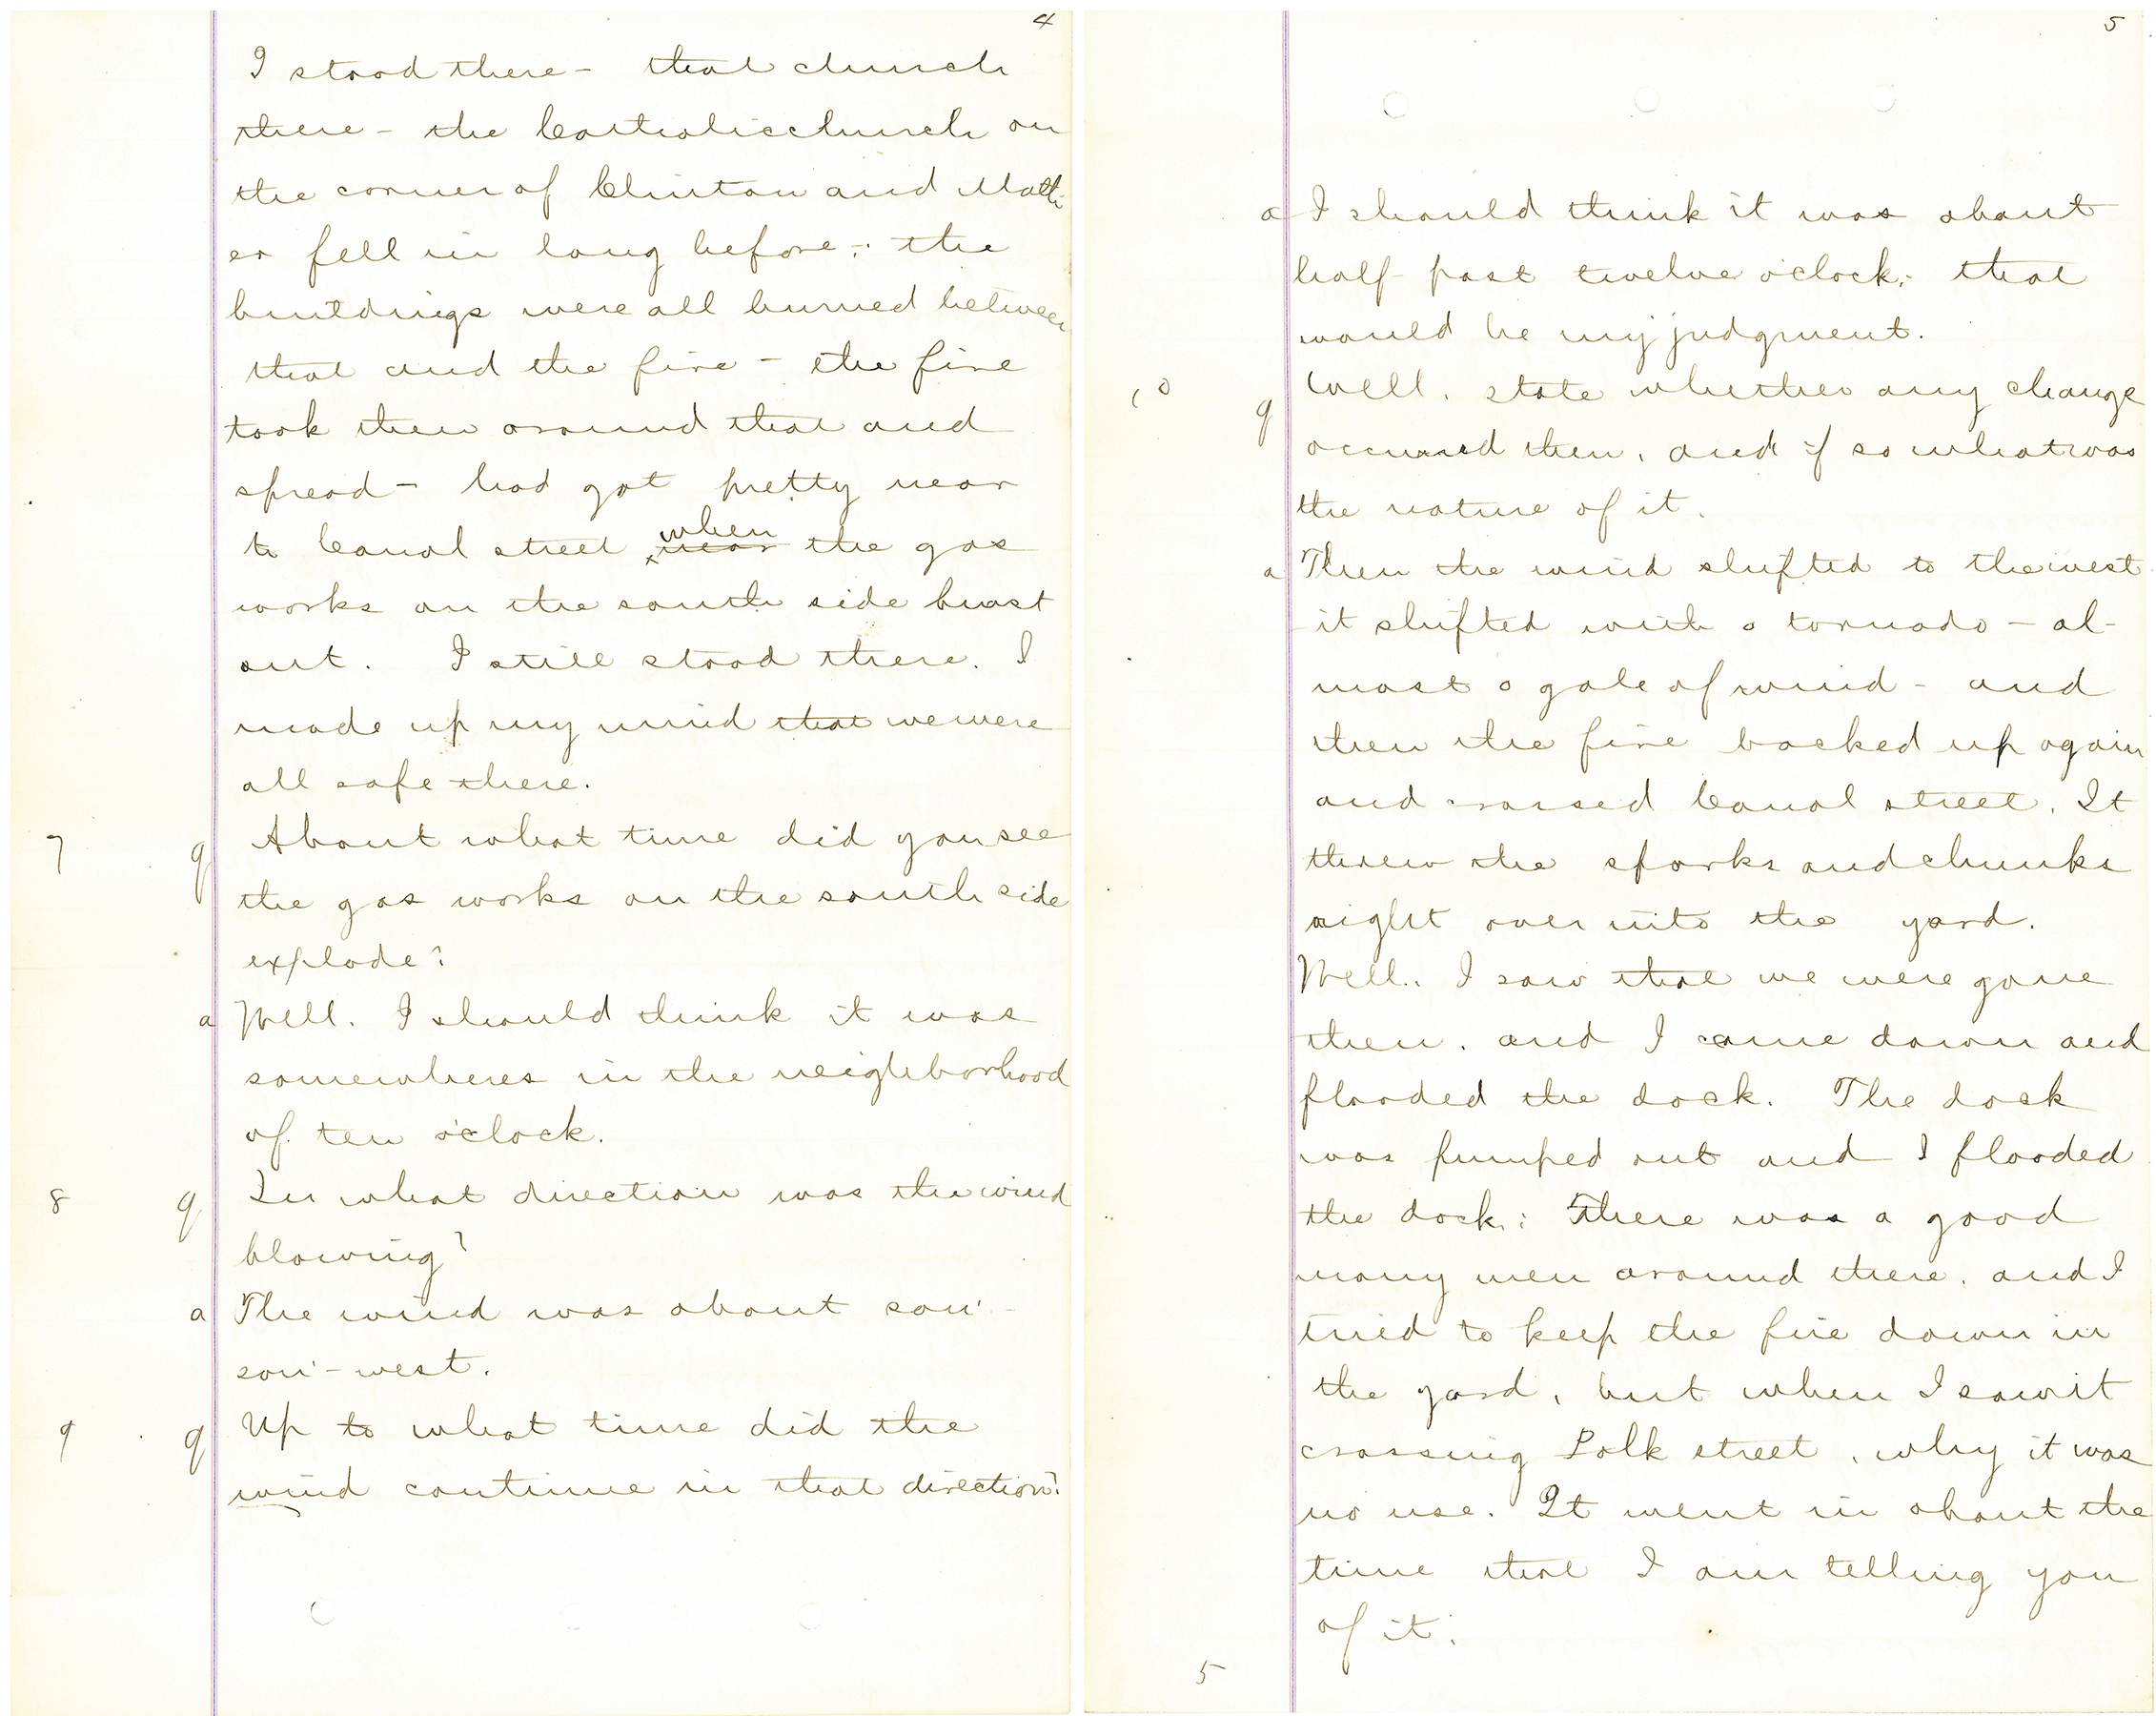 4
I stood there - that church
there - the Catholic church on
the corner of Clinton and Matti
er fell in long before; the
buildings were all burned between
that and the fire - the fire
took then around that and
spread - had got pretty near
to Canal street ^ when near the gas
works on the south side burst
out. I still stood there. I
made up my mind that we were
all safe there.
7 q About what time did you see
the gas works on the south side
explode?
a Well. I should think it was
somewheres in the neighborhood
of ten o'clock.
8 q In what direction was the wind
blowing?
a The wind was about sou' -
sou' - west.
9 q Up to what time did the
wind continue in that direction?
5
a I should think it was about
half past twelve o'clock; that
would be my judgment.
10 q Well, state whether any change
occurred then, and if so what was
the nature of it.
a Then the wind shifted to the west
it shifted with a tornado - al-
most a gale of wind - and
then the fire backed up again
and crossed Canal street. It
threw the sparks and chunks
right over into the yard.
Well, I saw that we were gone
then, and I came down and
flooded the dock. The dock
was pumped out and I flooded
the dock; There was a good
many men around there, and I
tried to keep the fire down in
the yard, but when I saw it
crossing Polk street, why it was
no use. It went in about the
time that I am telling you
of it.
5